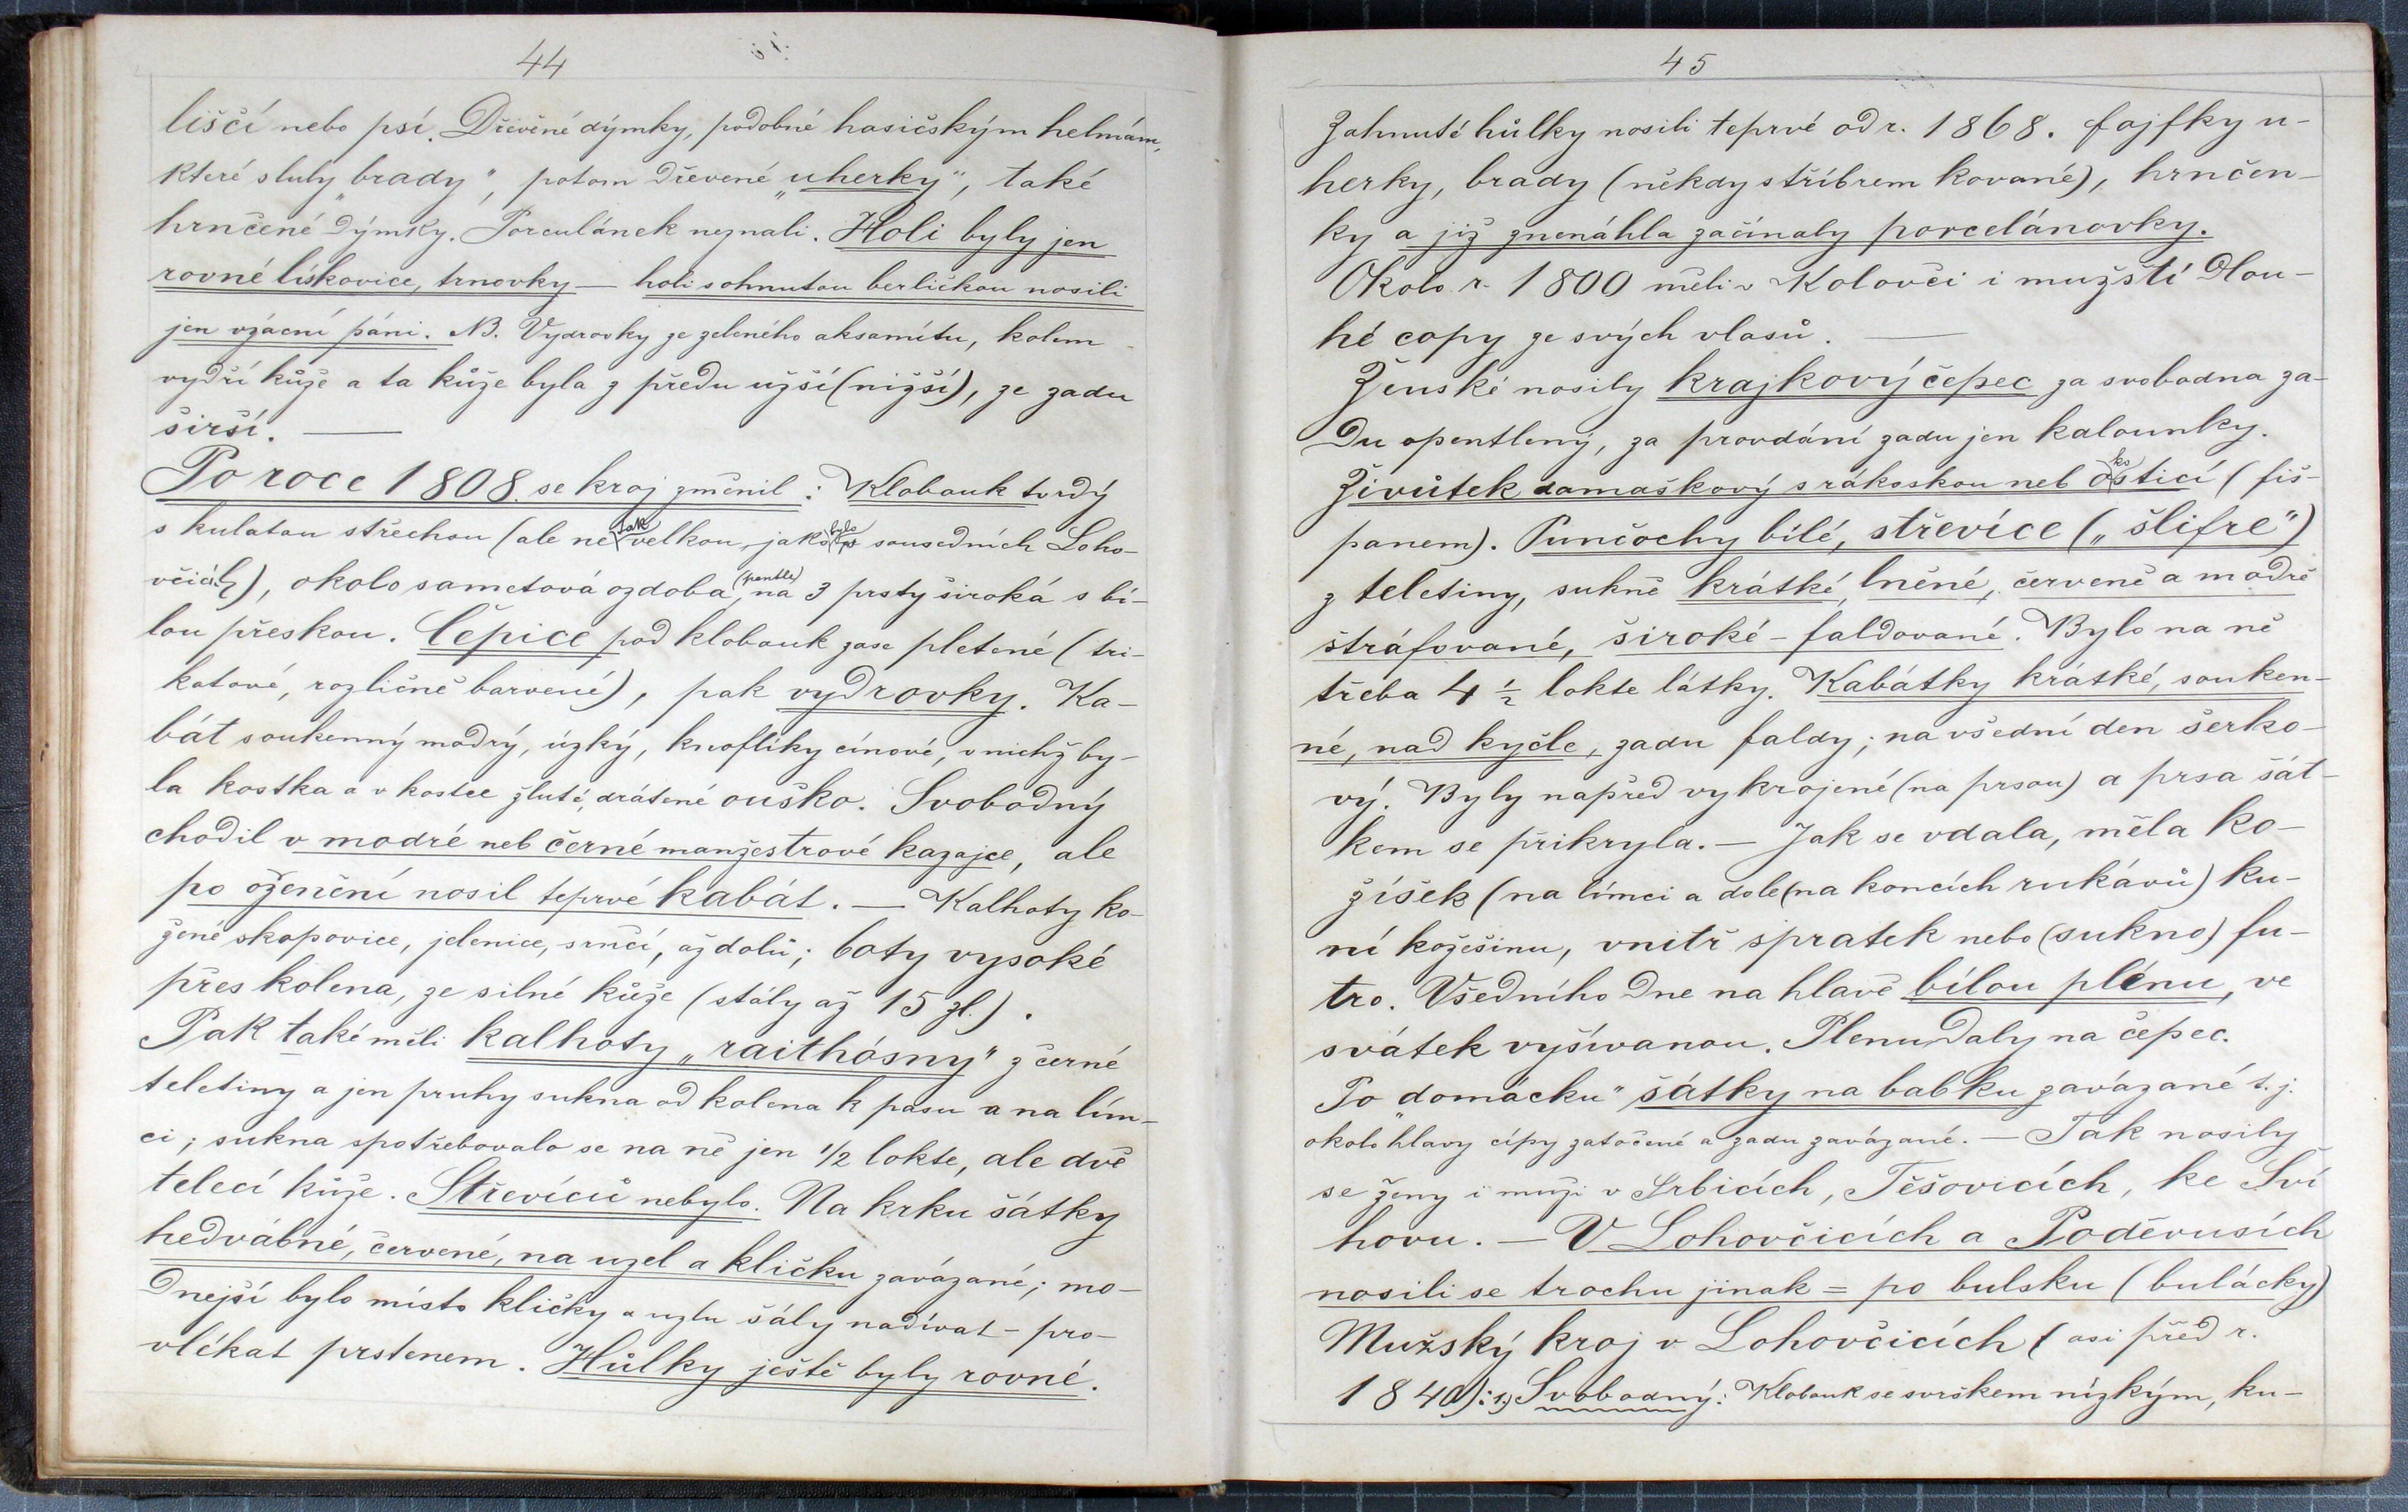 44
liščí nebo psí. Dřevěné dýmky, podobné hasičským helmám,
které sluly „brady", potom dřevené „uherky", také
hrnčené dýmky. Porculánek neznali. Holi byly jen
rovné lískovice, trnovky — holi s ohnutou berličkou nosili
jen vzácní páni. NB. Vydrovky ze zeleného aksamítu, kolem
vydří kůže a ta kůže byla z předu užší (nižší), ze zadu
širší. —
Po roce 1808. se kroj změnil: Klobouk tvrdý
s kulatou střechou (ale ne tak velkou, jako bylo v sousedních Loho-
včicích), okolo sametová ozdoba (pentle), na 3 prsty široká s bí-
lou přeskou. Čepice pod klobouk zase pletené (tri-
kotové, rozličně barvené), pak vydrovky. Ka-
bát soukenný modrý, úzký, knoflíky cínové, v nichž by-
la kostka a v kostce žluté, drátené ouško. Svobodný
chodil v modré neb černé manžestrové kazajce, ale
po oženění nosil teprvé kabát. — Kalhoty ko-
žené skopovice, jelenice, srnčí, až dolů; boty vysoké
přes kolena, ze silné kůže (stály až 15 zl.).
Pak také měli kalhoty „raithósny" z černé
teletiny a jen pruhy sukna od kolena k pasu a na lím-
ci; sukna spotřebovalo se na ně jen 1/2 lokte, ale dvě
telecí kůže. Střevíců nebylo. Na krku šátky
hedvábné, červené, na uzel a kličku zavázané; mo-
dnejší bylo místo kličky a uzlu šály nadívat - pro-
vlékat prstenem. Hůlky ještě byly rovné.
45
Zahnuté hůlky nosili teprvé od r. 1868. fajfky u-
herky, brady (někdy stříbrem kované), hrnčen-
ky a již znenáhla začínaly porcelánovky.
Okolo r. 1800 měli v Kolovči i mužští dlou-
hé copy ze svých vlasů. —
Ženské nosily krajkový čepec za svobodna za-
du opentlený, za provdání zadu jen kalounky.
Živůtek damaškový s rákoskou neb ko sticí (fiš-
panem). Punčochy bílé, střevíce („šlifre")
z teletiny, sukně krátké, lněné, červeně a modře
štráfované, široké - faldované. Bylo na ně
třeba 4 1/2 lokte látky. Kabátky krátké, souken-
né, nad kyčle, zadu faldy; na všední den šerko-
vý. Byly napřed vykrojené (na prsou) a prsa šát-
kem se přikryla. — Jak se vdala, měla ko-
žíšek (na límci a dole (na koncích rukávů) ku-
ní kožešinu, vnitř spratek nebo (sukno) fu-
tro. Všedního dne na hlavě bílou plénu, ve
svátek vyšívanou. Plenu daly na čepec.
Po „domácku" šátky na babku zavázané t. j.
okolo hlavy cípy zatočené a zadu zavázané. — Tak nosily
se ženy i muži v Srbicích, Těšovicích, ke Šví
hovu. — V Lohovčicích a Poděvusích
nosili se trochu jinak = po bulsku (bulácky)
Mužský kroj v Lohovčicích (asi před r.
1840): 1) Svobodný: Klobouk se svrškem nízkým, ku-